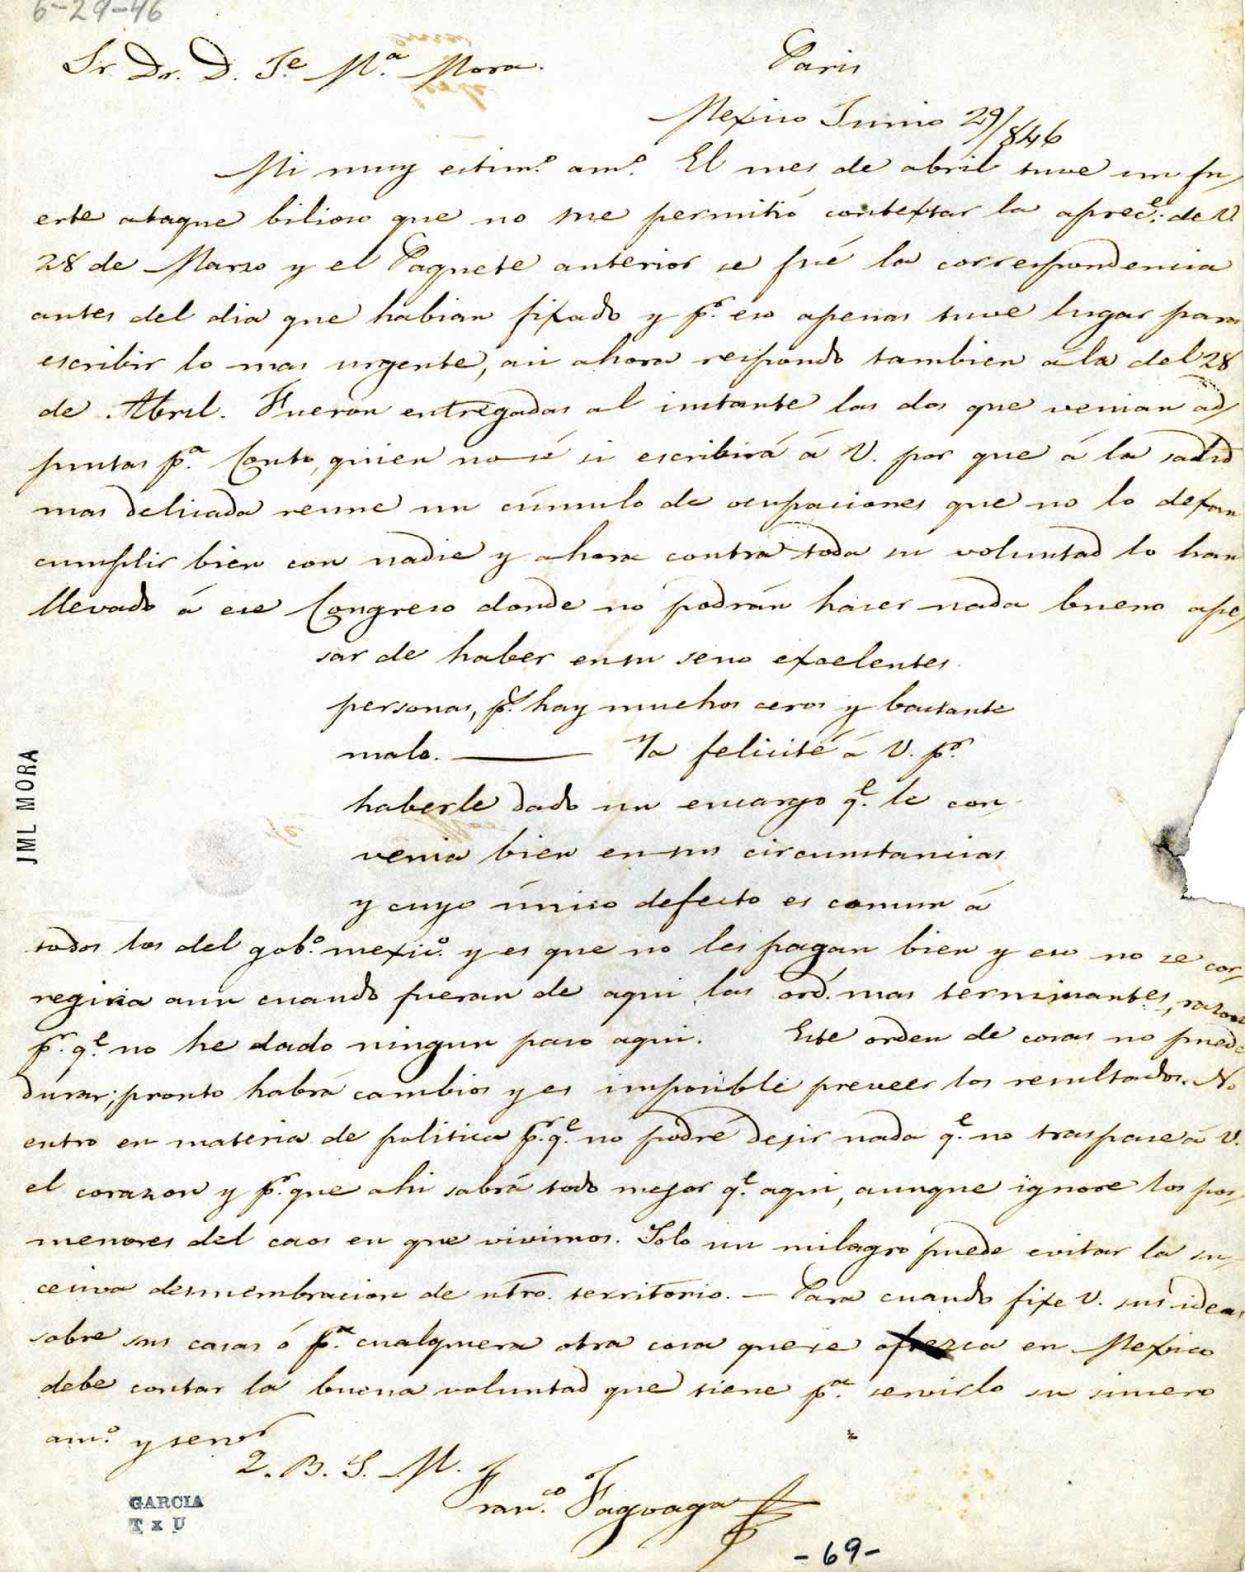 6-29-46
Sr. Dr. D. Je. Ma. Mora. Paris
Mexico Junio 29/846
Mi muy estimo. amo. El mes de abril tuve un fu-
erte ataque bilioso que no me permitió contextar la aprece. de V.
28 de Marzo y el Paquete anterior se fué la correspondencia
antes del dia que habian fixado y pr. eso apenas tuve lugar para
escribir lo mas urgente, asi ahora respondo tambien á la del 28
de Abril. Fueron entregadas al instante las dos que venian ad-
juntas pa. Couto, quien no sé si escribirá á V. por que á la salud
mas delicada reune un cúmulo de ocupaciones que no lo dexan
cumplir bien con nadie y ahora contra toda su voluntad lo han
llevado á ese Congreso donde no podrán hacer nada bueno ape-
sar de haber en su seno exelentes
personas, pe. hay muchos ceros y bastante
malo. — Ya felicité á V. pr.
haberle dado un encargo qe. le con-
venia bien en sus circunstancias
y cuyo único defecto es comun á
todos los del gobo. mexico. y es que no les pagan bien y eso no se cor-
regiria aun cuando fueran de aqui las ord. mas terminantes, razon
pr. qe. no he dado ningun paso aqui. Este orden de cosas no puede
durar; pronto habrá cambios y es imposible preveer los resultados. No
entro en materia de politica pr. qe. no podré desir nada qe. no traspase á V.
el corazon y pr. que ahi sabrá todo mejor qe. aqui, aunque ignore los por-
menores del caos en que vivimos. Solo un milagro puede evitar la su-
cesiva desmembracion de ntro. territorio. — Para cuando fixe V. sus ideas
sobre sus casas ó pa. cualquera otra cosa que se ofrezca en Mexico
debe contar la buena voluntad que tiene pa. servirlo su sincero
amo. y servr.
Q. B. S. M.
Franco. Fagoaga
JML MORA
GARCIA
T x U
-69-